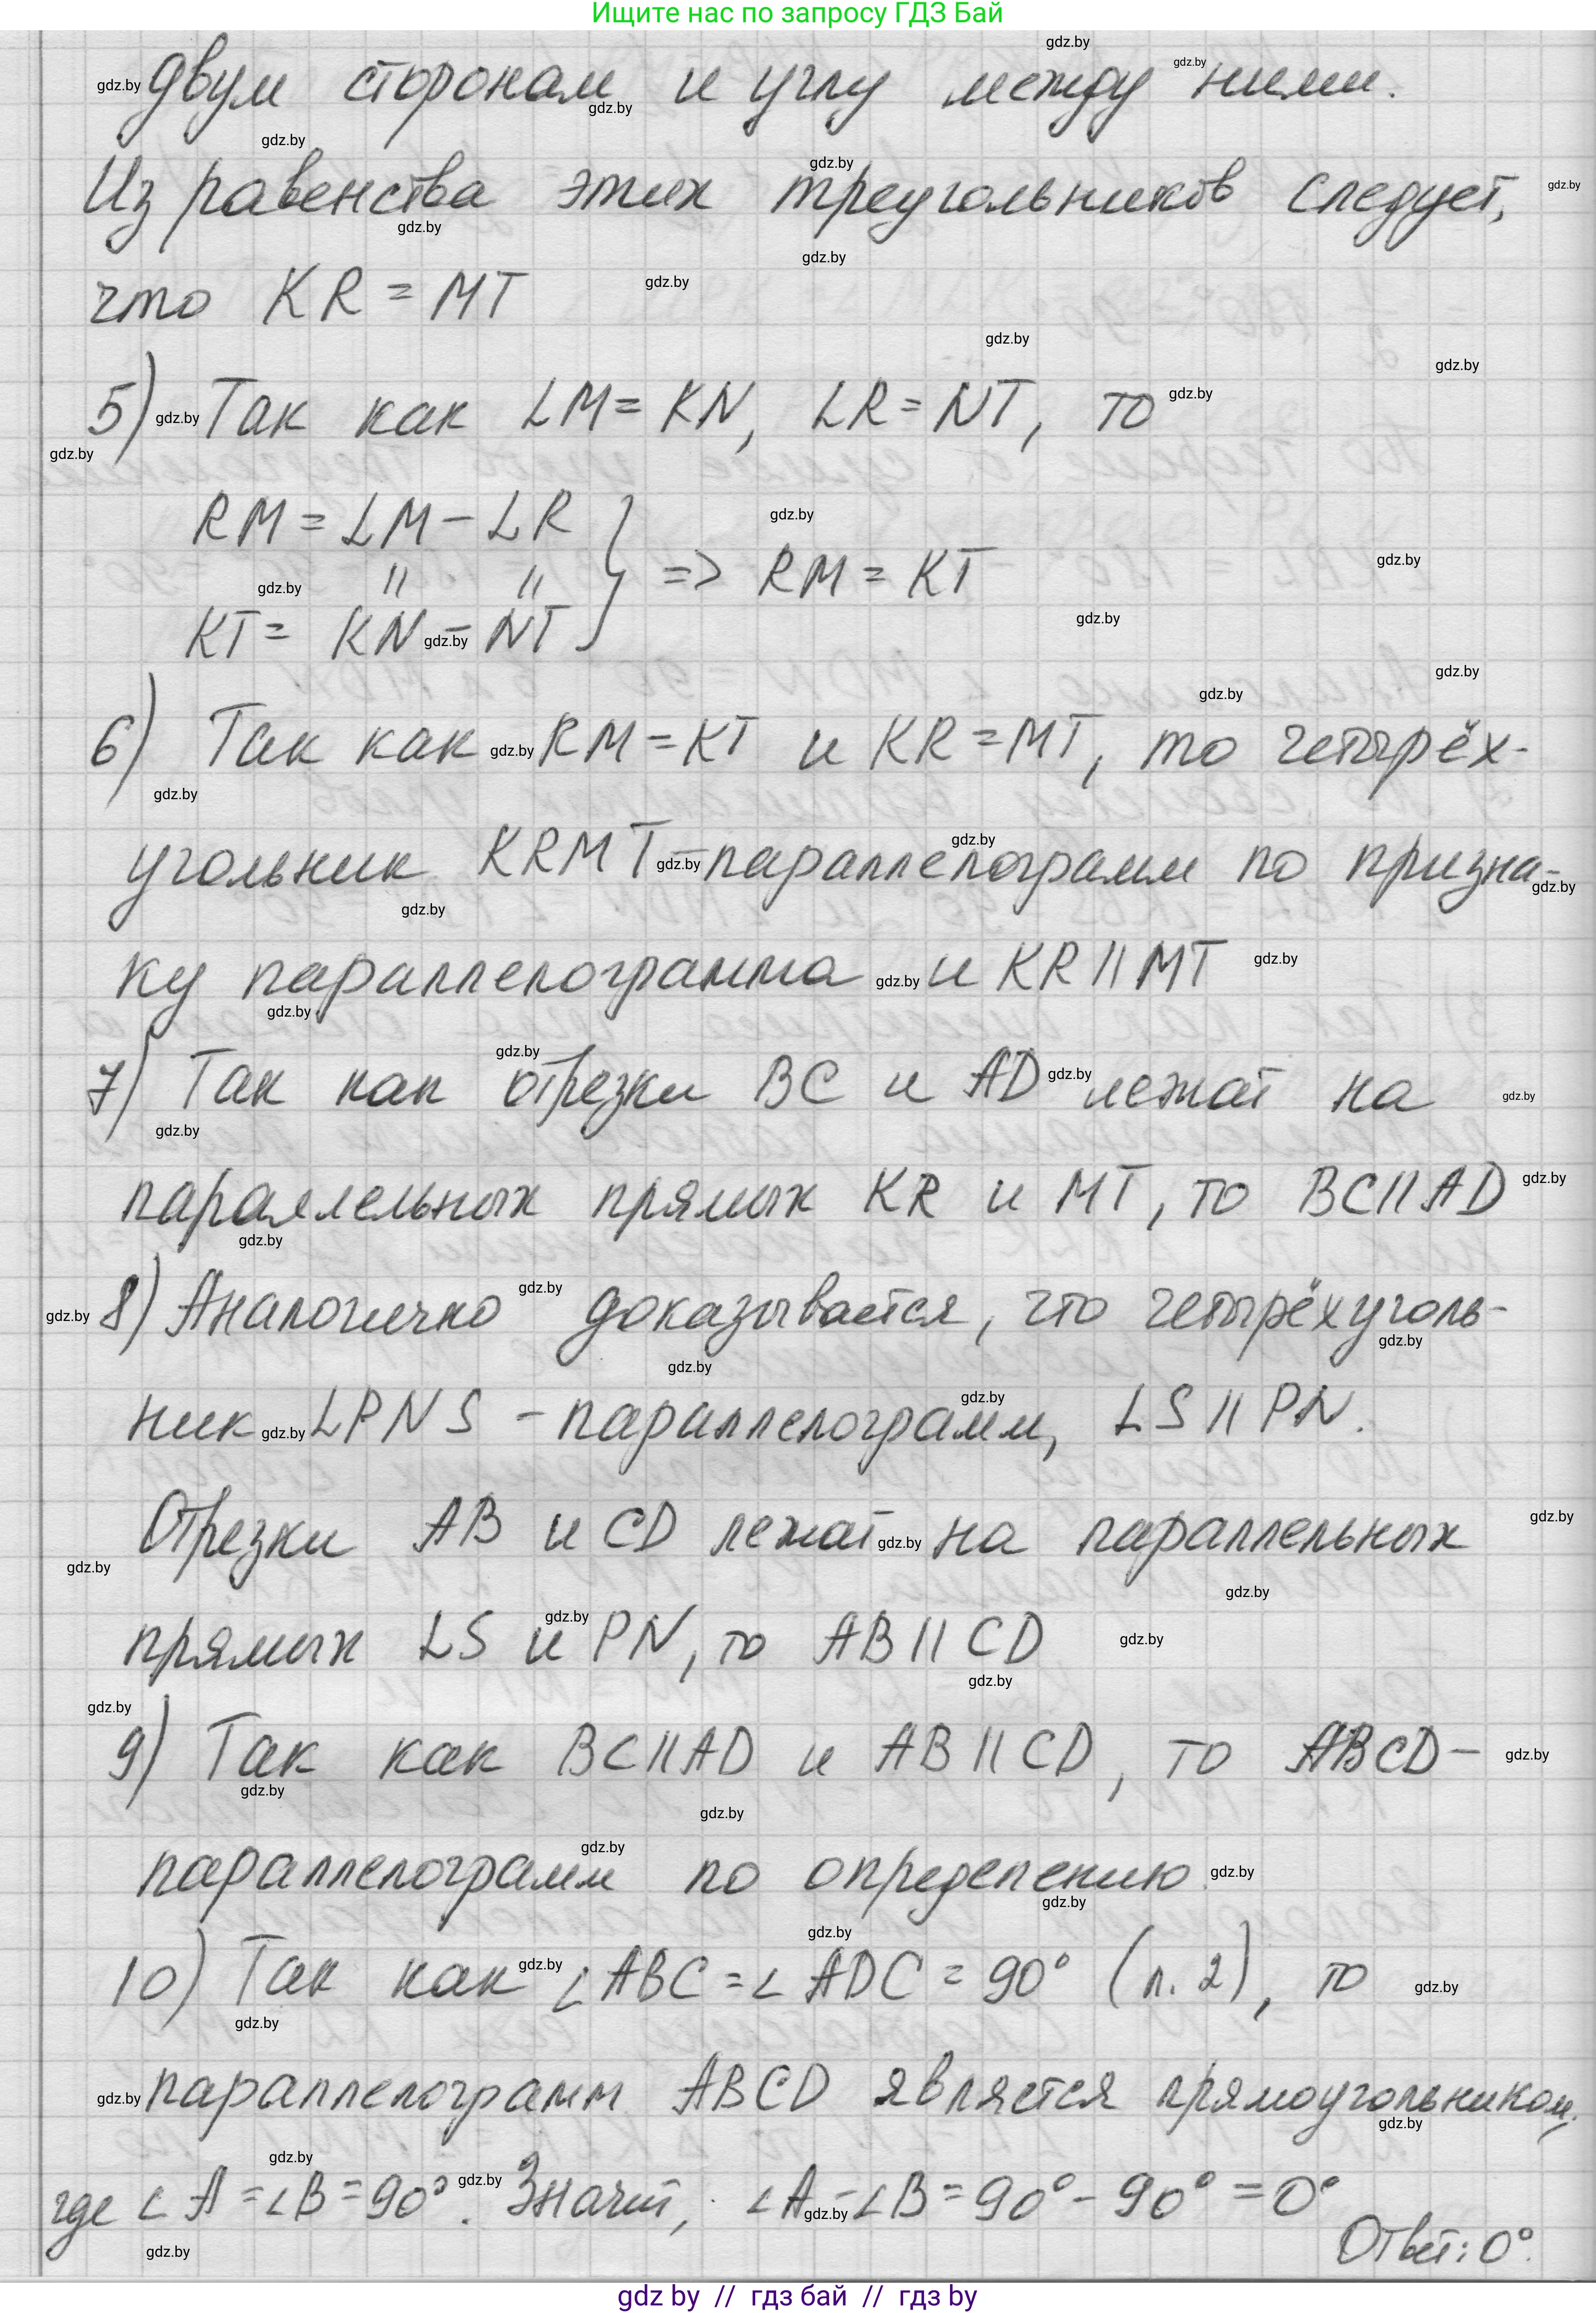 Ищите нас по запросу ГДЗ Бай
двум сторонам и углу между ними.
Из равенства этих треугольников следует,
что KR = MT
5) Так как LM = KN, LR = NT, то
RM = LM - LR
 " " } => RM = KT
KT = KN - NT
6) Так как RM = KT и KR = MT, то четырёх-
угольник KRMT - параллелограмм по призна-
ку параллелограмма и KR || MT
7) Так как отрезки BC и AD лежат на
параллельных прямых KR и MT, то BC || AD
8) Аналогично доказывается, что четырёхуголь-
ник LPNS - параллелограмм, LS || PN.
Отрезки AB и CD лежат на параллельных
прямых LS и PN, то AB || CD
9) Так как BC || AD и AB || CD, то ABCD -
параллелограмм по определению.
10) Так как ∠ABC = ∠ADC = 90° (п. 2), то
параллелограмм ABCD является прямоугольником,
где ∠A = ∠B = 90°. Значит, ∠A - ∠B = 90° - 90° = 0°
Ответ: 0°.
gdz by // гдз бай // гдз by